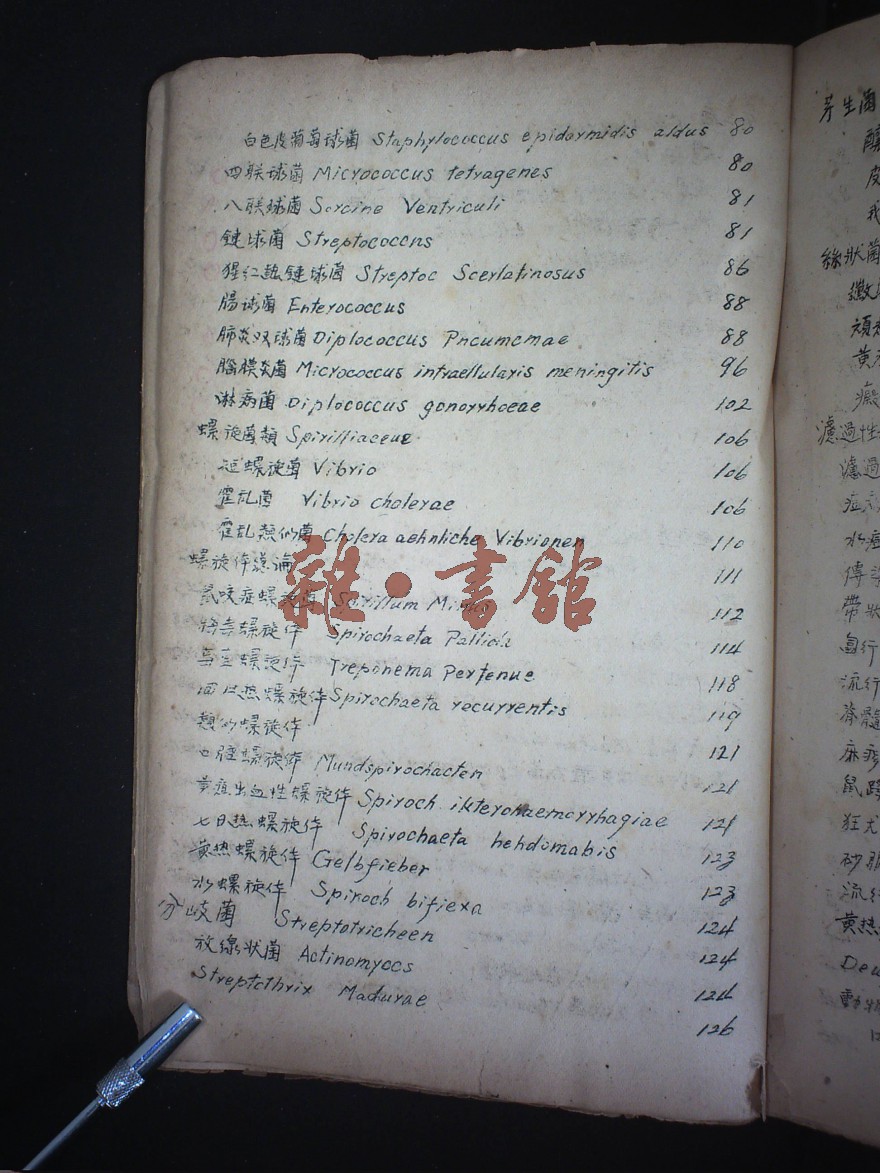 白色皮葡萄球菌 Staphylococcus epidormidis aldus 80
四联球菌 Micrococcus tetragenes 80
八联球菌 Sarcine Ventriculi 81
鏈球菌 Streptococcns 81
猩红热鏈球菌 Streptoc Scerlatinosus 86
腸球菌 Enterococcus 88
肺炎双球菌 Diplococcus Pncumcmae 88
腦膜炎菌 Micrococcus intraellularis meningitis 96
淋病菌 Diplococcus gonorrhoeae 102
螺旋菌類 Spirilliaceue 106
短螺旋菌 Vibrio 106
霍乱菌 Vibrio cholerae 106
霍乱類似菌 Cholera aehnliche Vibrionen 110
螺旋体總論 111
鼠咬症螺旋菌 Spirillum Minus 112
梅毒螺旋体 Spirochaeta Pallida 114
螺旋体 Treponema Pertenue 118
回归热螺旋体 Spirochaeta recurrentis 119
類似螺旋体 121
口腔螺旋体 Mundspirochacten 121
黄疸出血性螺旋体 Spiroch ikterohaemorrhagiae 121
七日热螺旋体 Spirochaeta hehdomabis 123
黄热螺旋体 Gelbfieber 123
水螺旋体 Spiroch bifiexa 124
分岐菌 Streptotricheen 124
放線状菌 Actinomyocs 124
Streptothrix Madurae 126
雜·書舘
芽生菌
皮
我
絲狀菌
黄
癜
濾過性
濾過
痘
水痘
傳染
帶狀
流行
脊髓
麻疹
鼠蹊
狂犬
砂眼
流行
黄热
動物